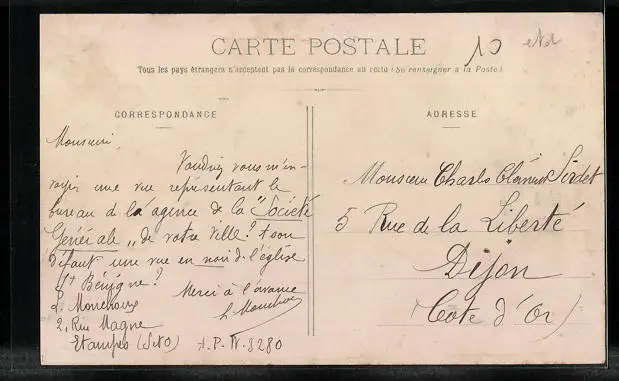 CARTE POSTALE
10
Tous les pays étrangers n'acceptent pas la correspondance au recto (Se renseigner à la Poste)
CORRESPONDANCE
Monsieur,
Voudriez vous m'en-
voyer une vue représentant le
bureau d la agence de la "Société
Générale" de votre ville? & son
défaut une vue en noir de l'église
St Bénigne?
Merci à l'avance
2, Rue Magne
Etampes (S&O) A.P.N. 8280
ADRESSE
Monsieur Charles Clément
5 Rue de la Liberté
Dijon
(Cote d'Or)